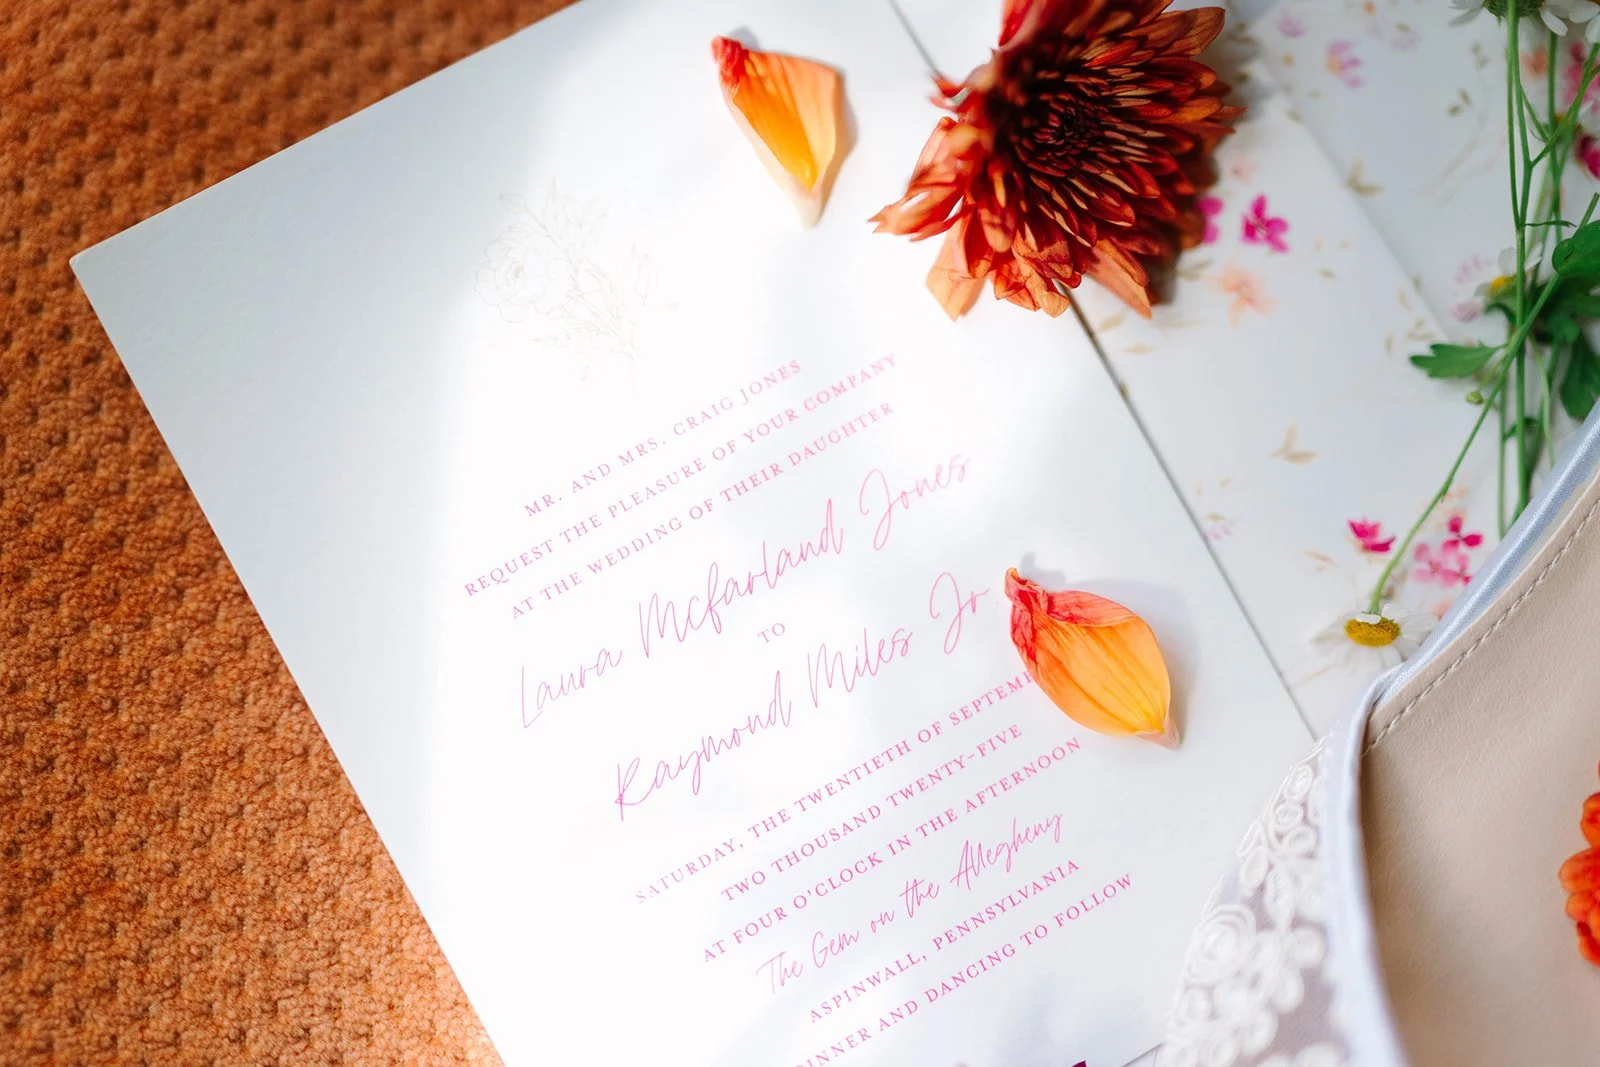 MR. AND MRS. CRAIG JONES
REQUEST THE PLEASURE OF YOUR COMPANY
AT THE WEDDING OF THEIR DAUGHTER
Laura McFarland Jones
TO
Raymond Miles Jr.
SATURDAY, THE TWENTIETH OF SEPTEM
TWO THOUSAND TWENTY-FIVE
AT FOUR O'CLOCK IN THE AFTERNOON
The Gem on the Allegheny
ASPINWALL, PENNSYLVANIA
DINNER AND DANCING TO FOLLOW